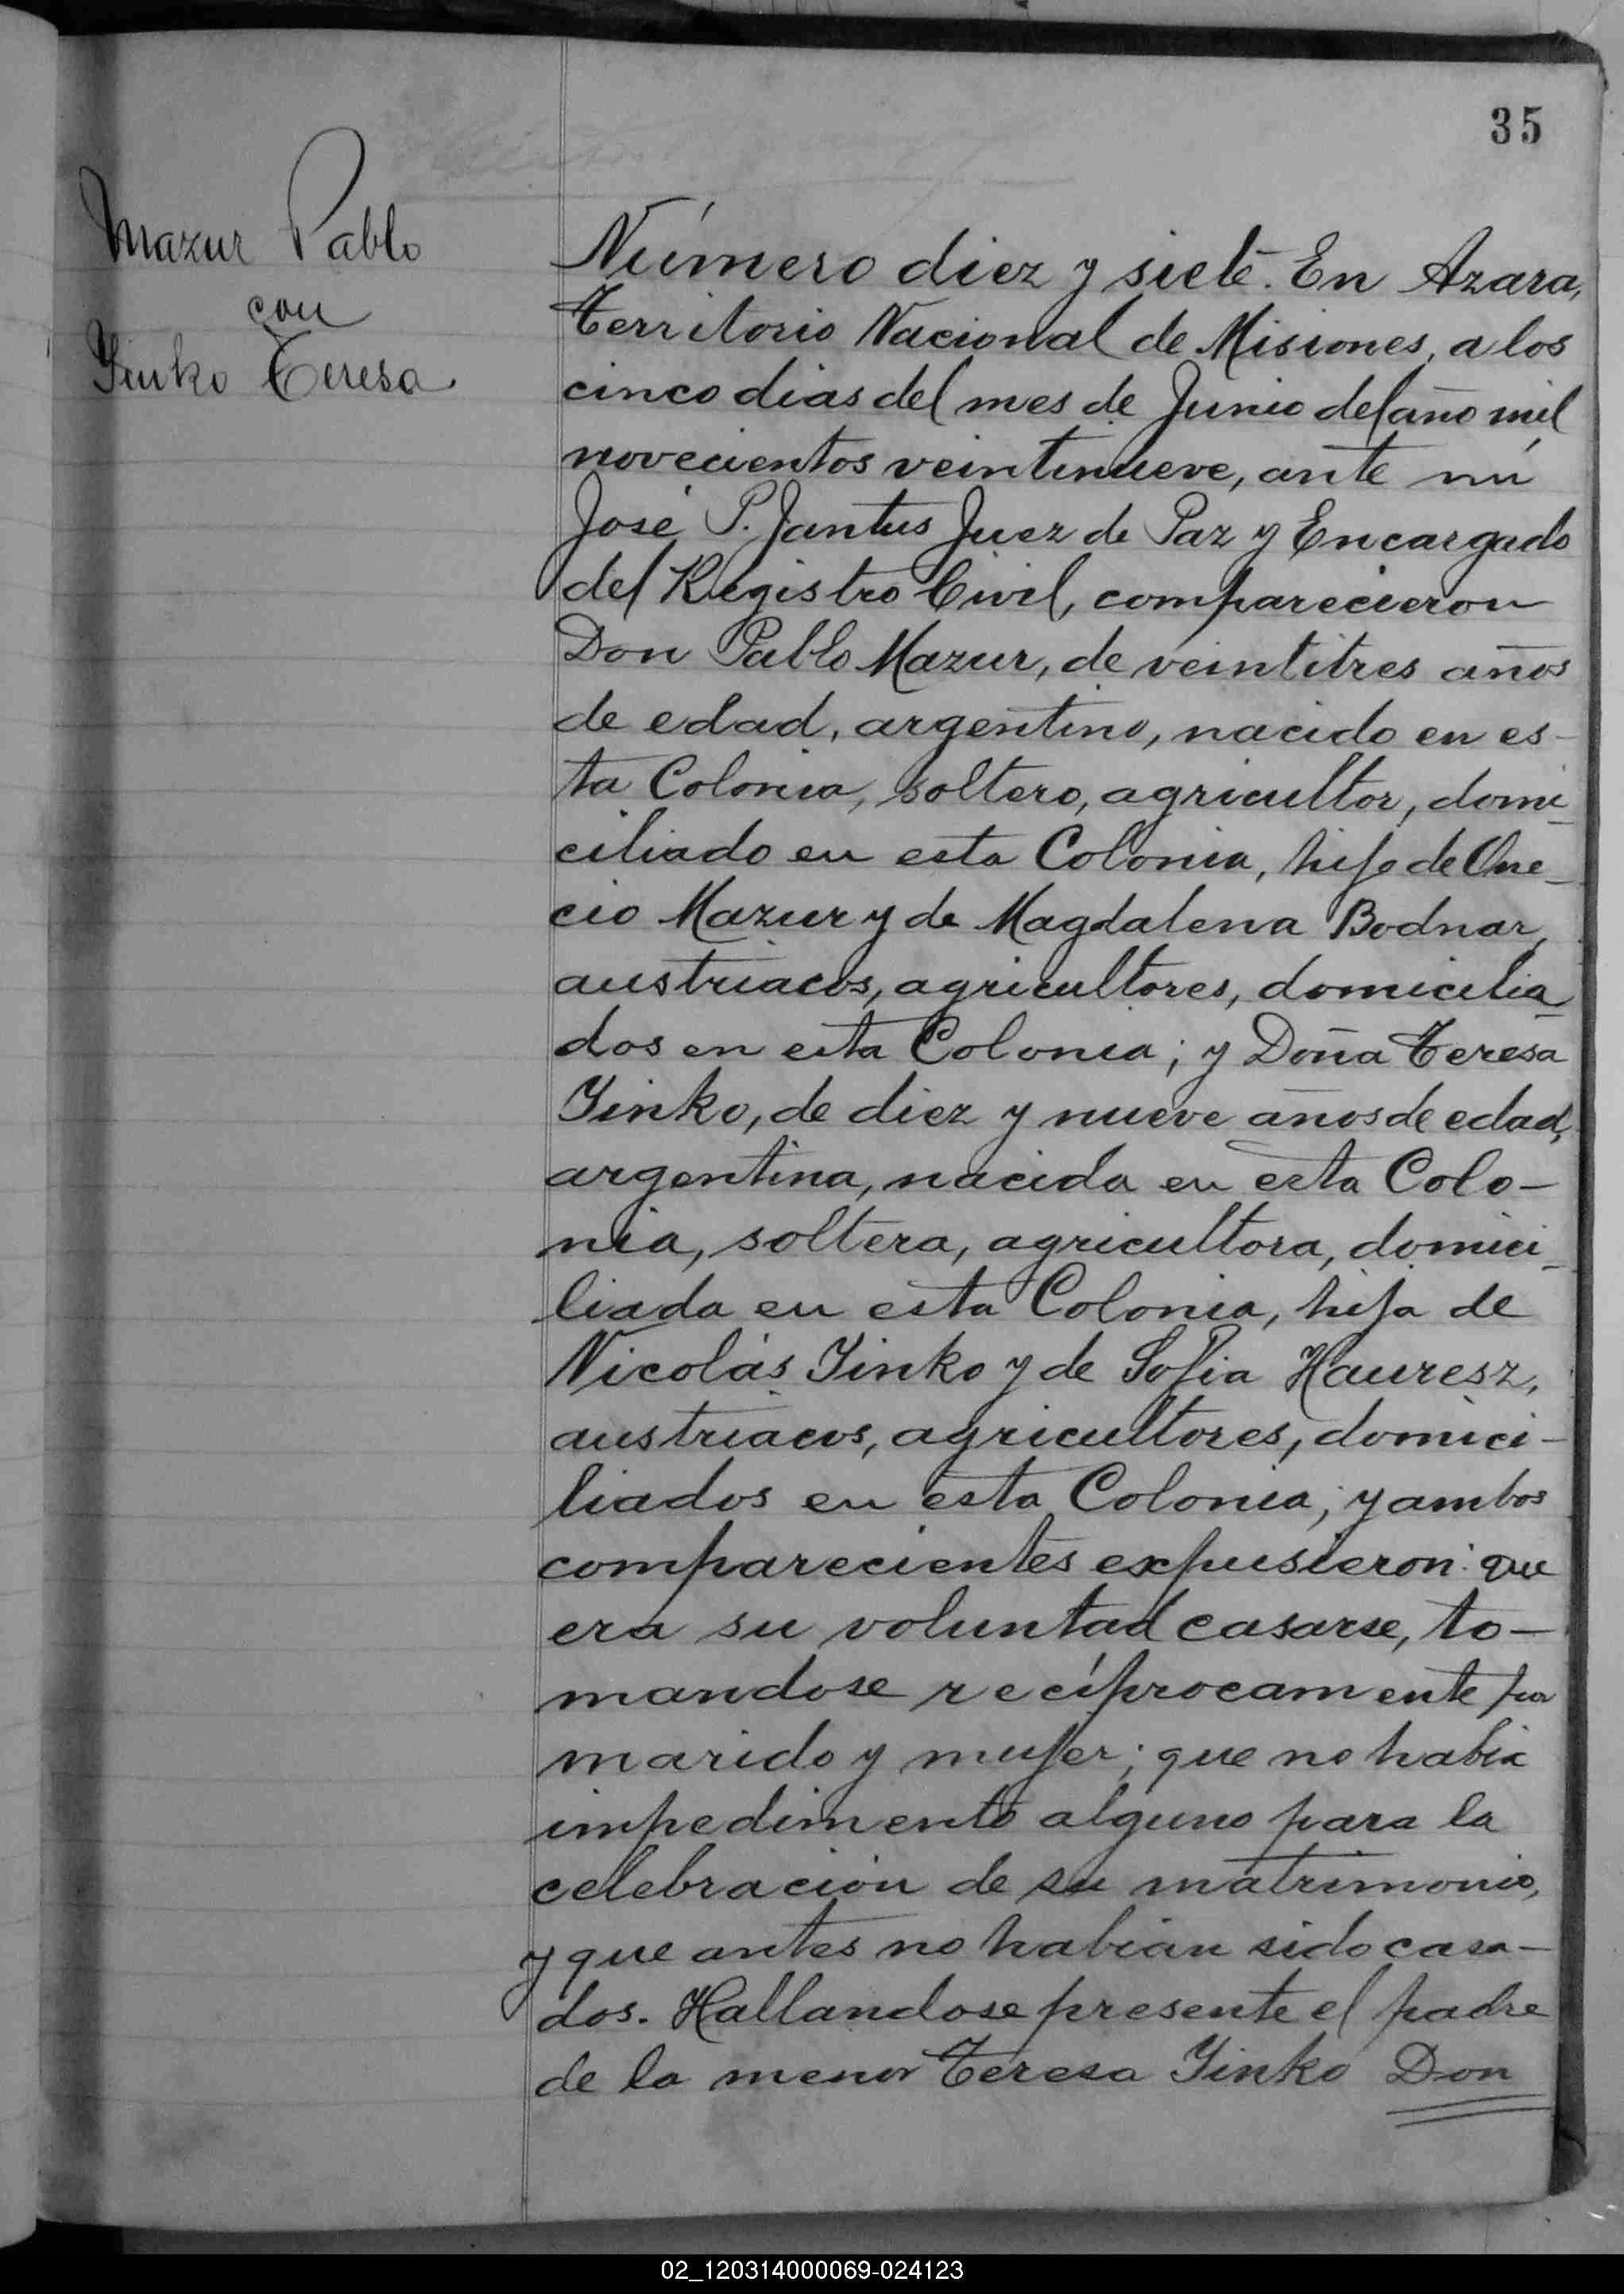 35
Mazur Pablo
con
Yinko Teresa
Número diez y siete. En Azara,
Territorio Nacional de Misiones, a los
cinco dias del mes de Junio del año mil
novecientos veintinueve, ante mí
José P. Jantus Juez de Paz y Encargado
del Registro Civil, comparecieron
Don Pablo Mazur, de veintitres años
de edad, argentino, nacido en es-
ta Colonia, soltero, agricultor, domi-
ciliado en esta Colonia, hijo de One-
cio Mazur y de Magdalena Bodnar,
austriacos, agricultores, domicilia-
dos en esta Colonia; y Doña Teresa
Yinko, de diez y nueve años de edad,
argentina, nacida en esta Colo-
nia, soltera, agricultora, domici-
liada en esta Colonia, hija de
Nicolás Yinko y de Sofia Hauresz,
austriacos, agricultores, domici-
liados en esta Colonia; y ambos
comparecientes expusieron: que
era su voluntad casarse, to-
mandose recíprocamente por
marido y mujer; que no habia
impedimento alguno para la
celebración de su matrimonio,
y que antes no habian sido casa-
dos. Hallandose presente el padre
de la menor Teresa Yinko Don
02_120314000069-024123